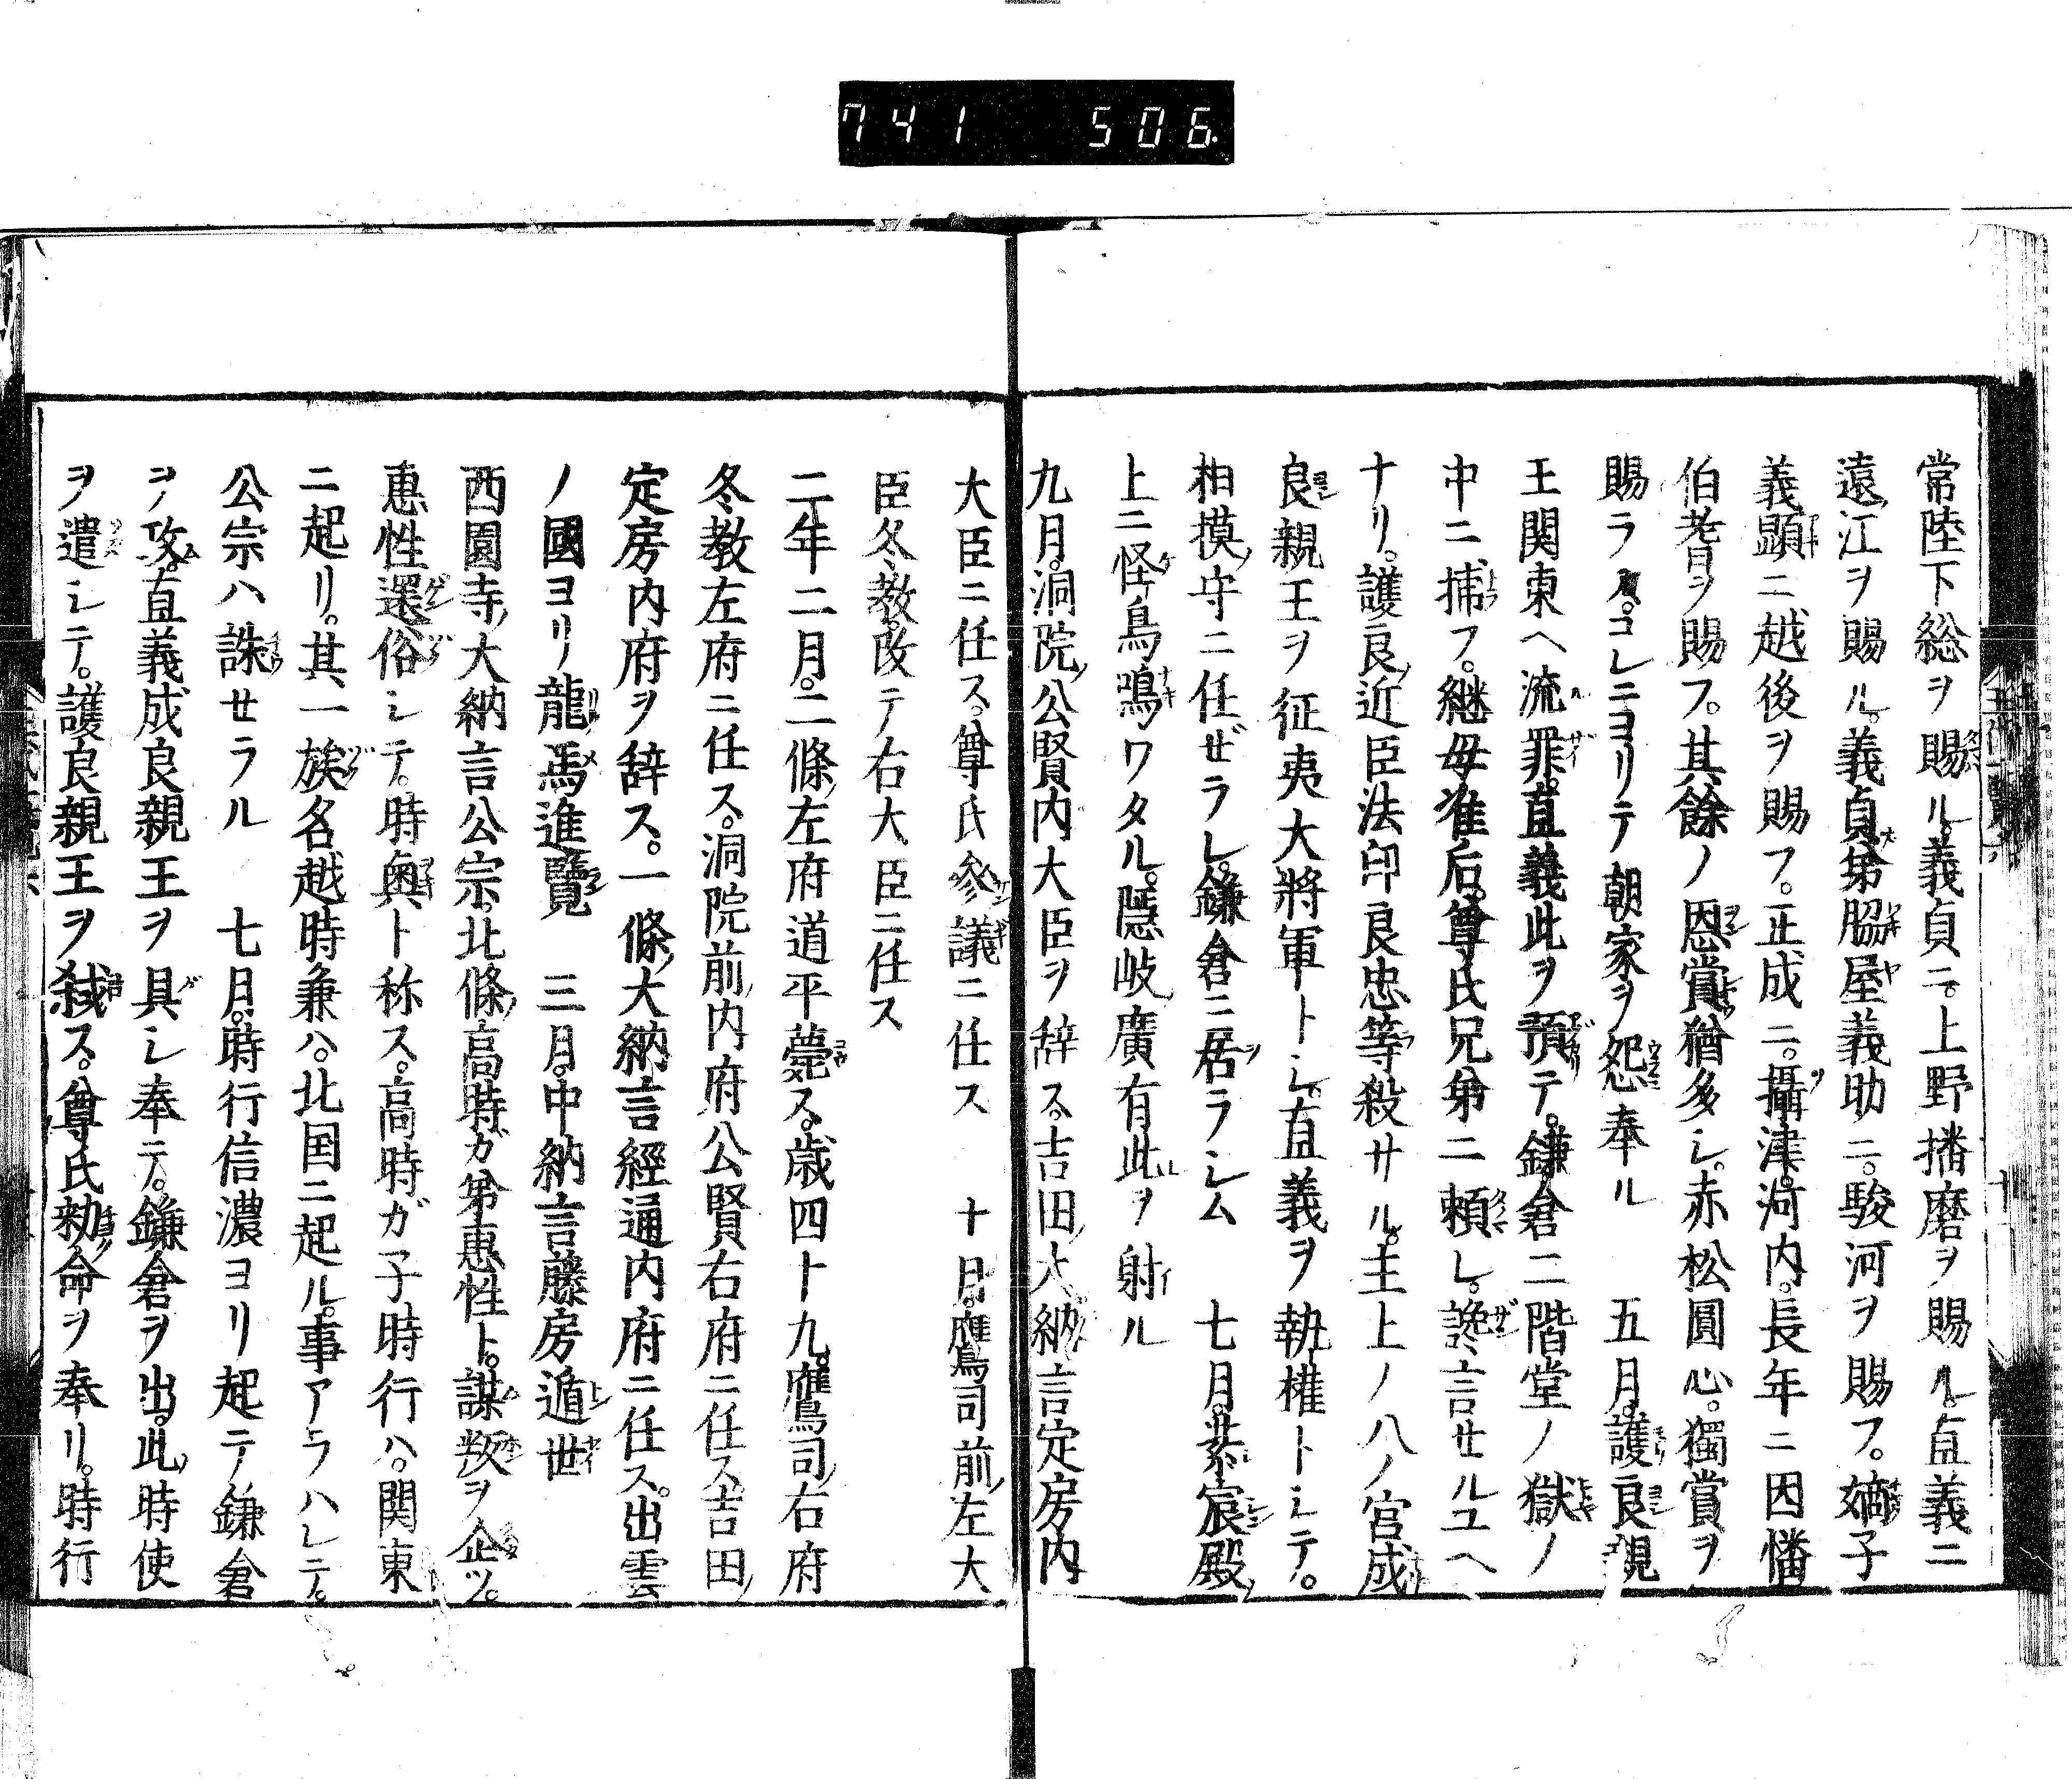 741 506
常陸下総ヲ賜ル。義貞ニ。上野播磨ヲ賜ル。直義ニ
遠江ヲ賜ル。義貞弟脇屋義助ニ。駿河ヲ賜フ。嫡子
義顕ニ越後ヲ賜フ。正成ニ。攝津。河内。長年ニ因幡
伯耆ヲ賜フ。其餘ノ恩賞猶多シ。赤松圓心。獨賞ヲ
賜ラズ。コレニヨリテ朝家ヲ怨奉ル 五月。護良親
王関東ヘ流罪。直義此ヲ預テ。鎌倉二階堂ノ獄ノ
中ニ捕フ。継母准后。尊氏兄弟ニ頼レ。讒言せルユヘ
ナリ。護良ノ近臣法印良忠等殺サル。主上ノ八ノ宮成
良親王ヲ征夷大將軍トシ。直義ヲ執權トシテ。
相摸守ニ任ぜラレ。鎌倉ニ居ラシム 七月。紫宸殿ノ
上ニ怪鳥鳴ワタル。隠岐廣有此ヲ射ル
九月。洞院公賢内大臣ヲ辞ス。吉田大納言定房内
大臣ニ任ス。尊氏參議ニ任ス 十月。鷹司前左大
臣冬教。改テ右大臣ニ任ス
二年二月。二條左府道平薨ス。歳四十九。鷹司右府
冬教左府ニ任ス。洞院前内府公賢右府ニ任ス。吉田
定房内府ヲ辞ス。一條大納言經通内府ニ任ス。出雲
ノ國ヨリ龍馬進覽 三月。中納言藤房遁世
西園寺大納言公宗。北條高時ガ弟惠性ト。謀叛ヲ企ツ。
惠性還俗シテ。時興ト称ス。高時ガ子時行ハ。関東
ニ起リ。其一族名越時兼ハ。北国ニ起ル。事アラハレテ。
公宗ハ誅せラル 七月。時行信濃ヨリ起テ鎌倉
ヲ攻。直義成良親王ヲ具シ奉テ。鎌倉ヲ出。此時使
ヲ遣シテ。護良親王ヲ弑ス。尊氏勅命ヲ奉リ。時行